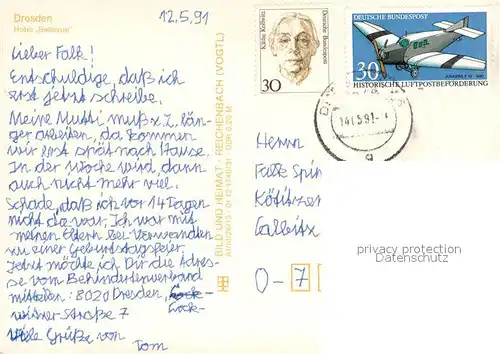 Dresden
Hotel „Bellevue“
12.5.91
Lieber Falk!
Entschuldige, daß ich
erst jetzt schreibe.
Meine Mutti muß z.Z. län-
ger arbeiten, da kommen
wir erst spät nach Hause.
In der Woche wird dann
auch nicht mehr viel.
Schade, daß ich vor 14 Tagen
nicht da war. Ich war mit
meinen Eltern bei Verwandten
zu einer Geburtstagsfeier.
Jetzt möchte ich Dir die Adres-
se vom Behindertenverband
mitteilen: 8020 Dresden,
Lock-
witzer-Straße 7
Viele Grüße von
Tom
BILD UND HEIMAT REICHENBACH (VOGTL)
Käthe Kollwitz
Deutsche Bundespost
30
DEUTSCHE BUNDESPOST
JUNKERS F 13
30
HISTORISCHE LUFTPOSTBEFÖRDERUNG
Herrn
Falk
O-7
privacy protection
Datenschutz